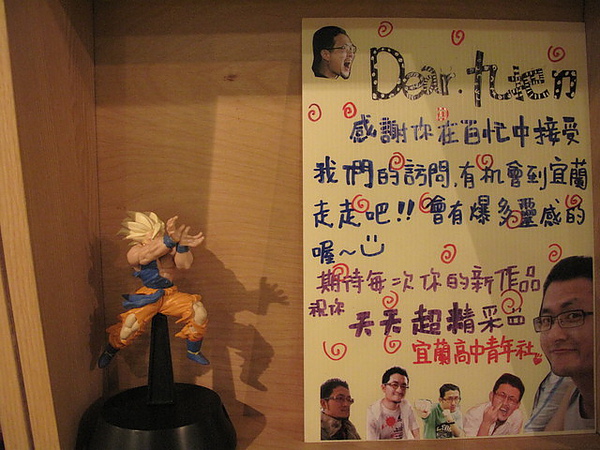 Dear. tuen
感謝你在百忙中接受
我們的訪問,有机會到宜蘭
走走吧!!會有爆多靈感的
喔~
期待每次你的新作品
祝你 天天超精采
宜蘭高中青年社